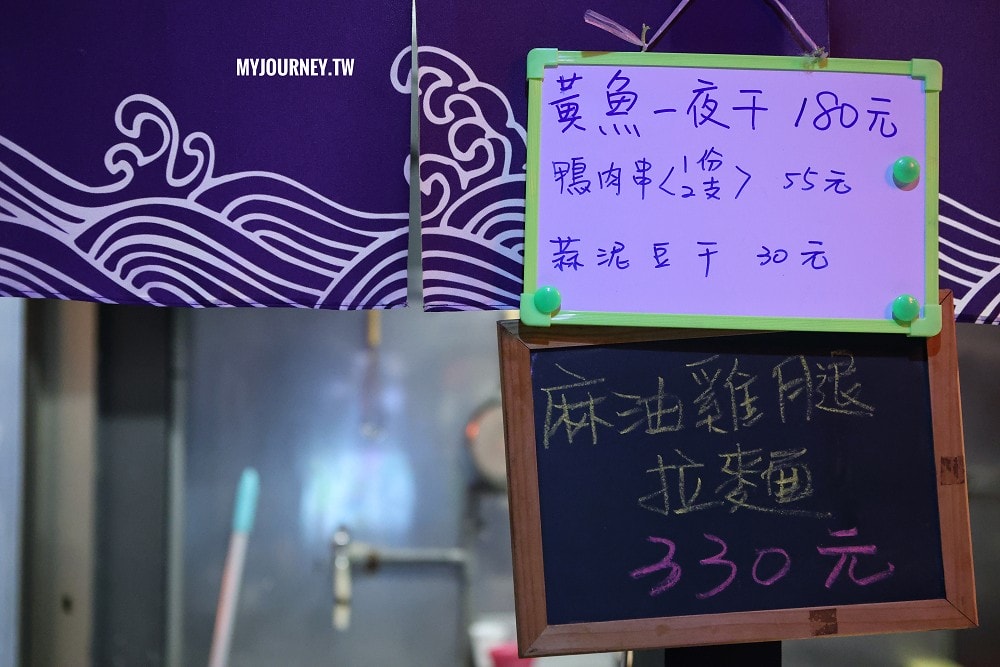 MYJOURNEY.TW
黃魚一夜干 180元
鴨肉串〈1份2支〉 55元
蒜泥豆干 30元
麻油雞腿
拉麵
330元